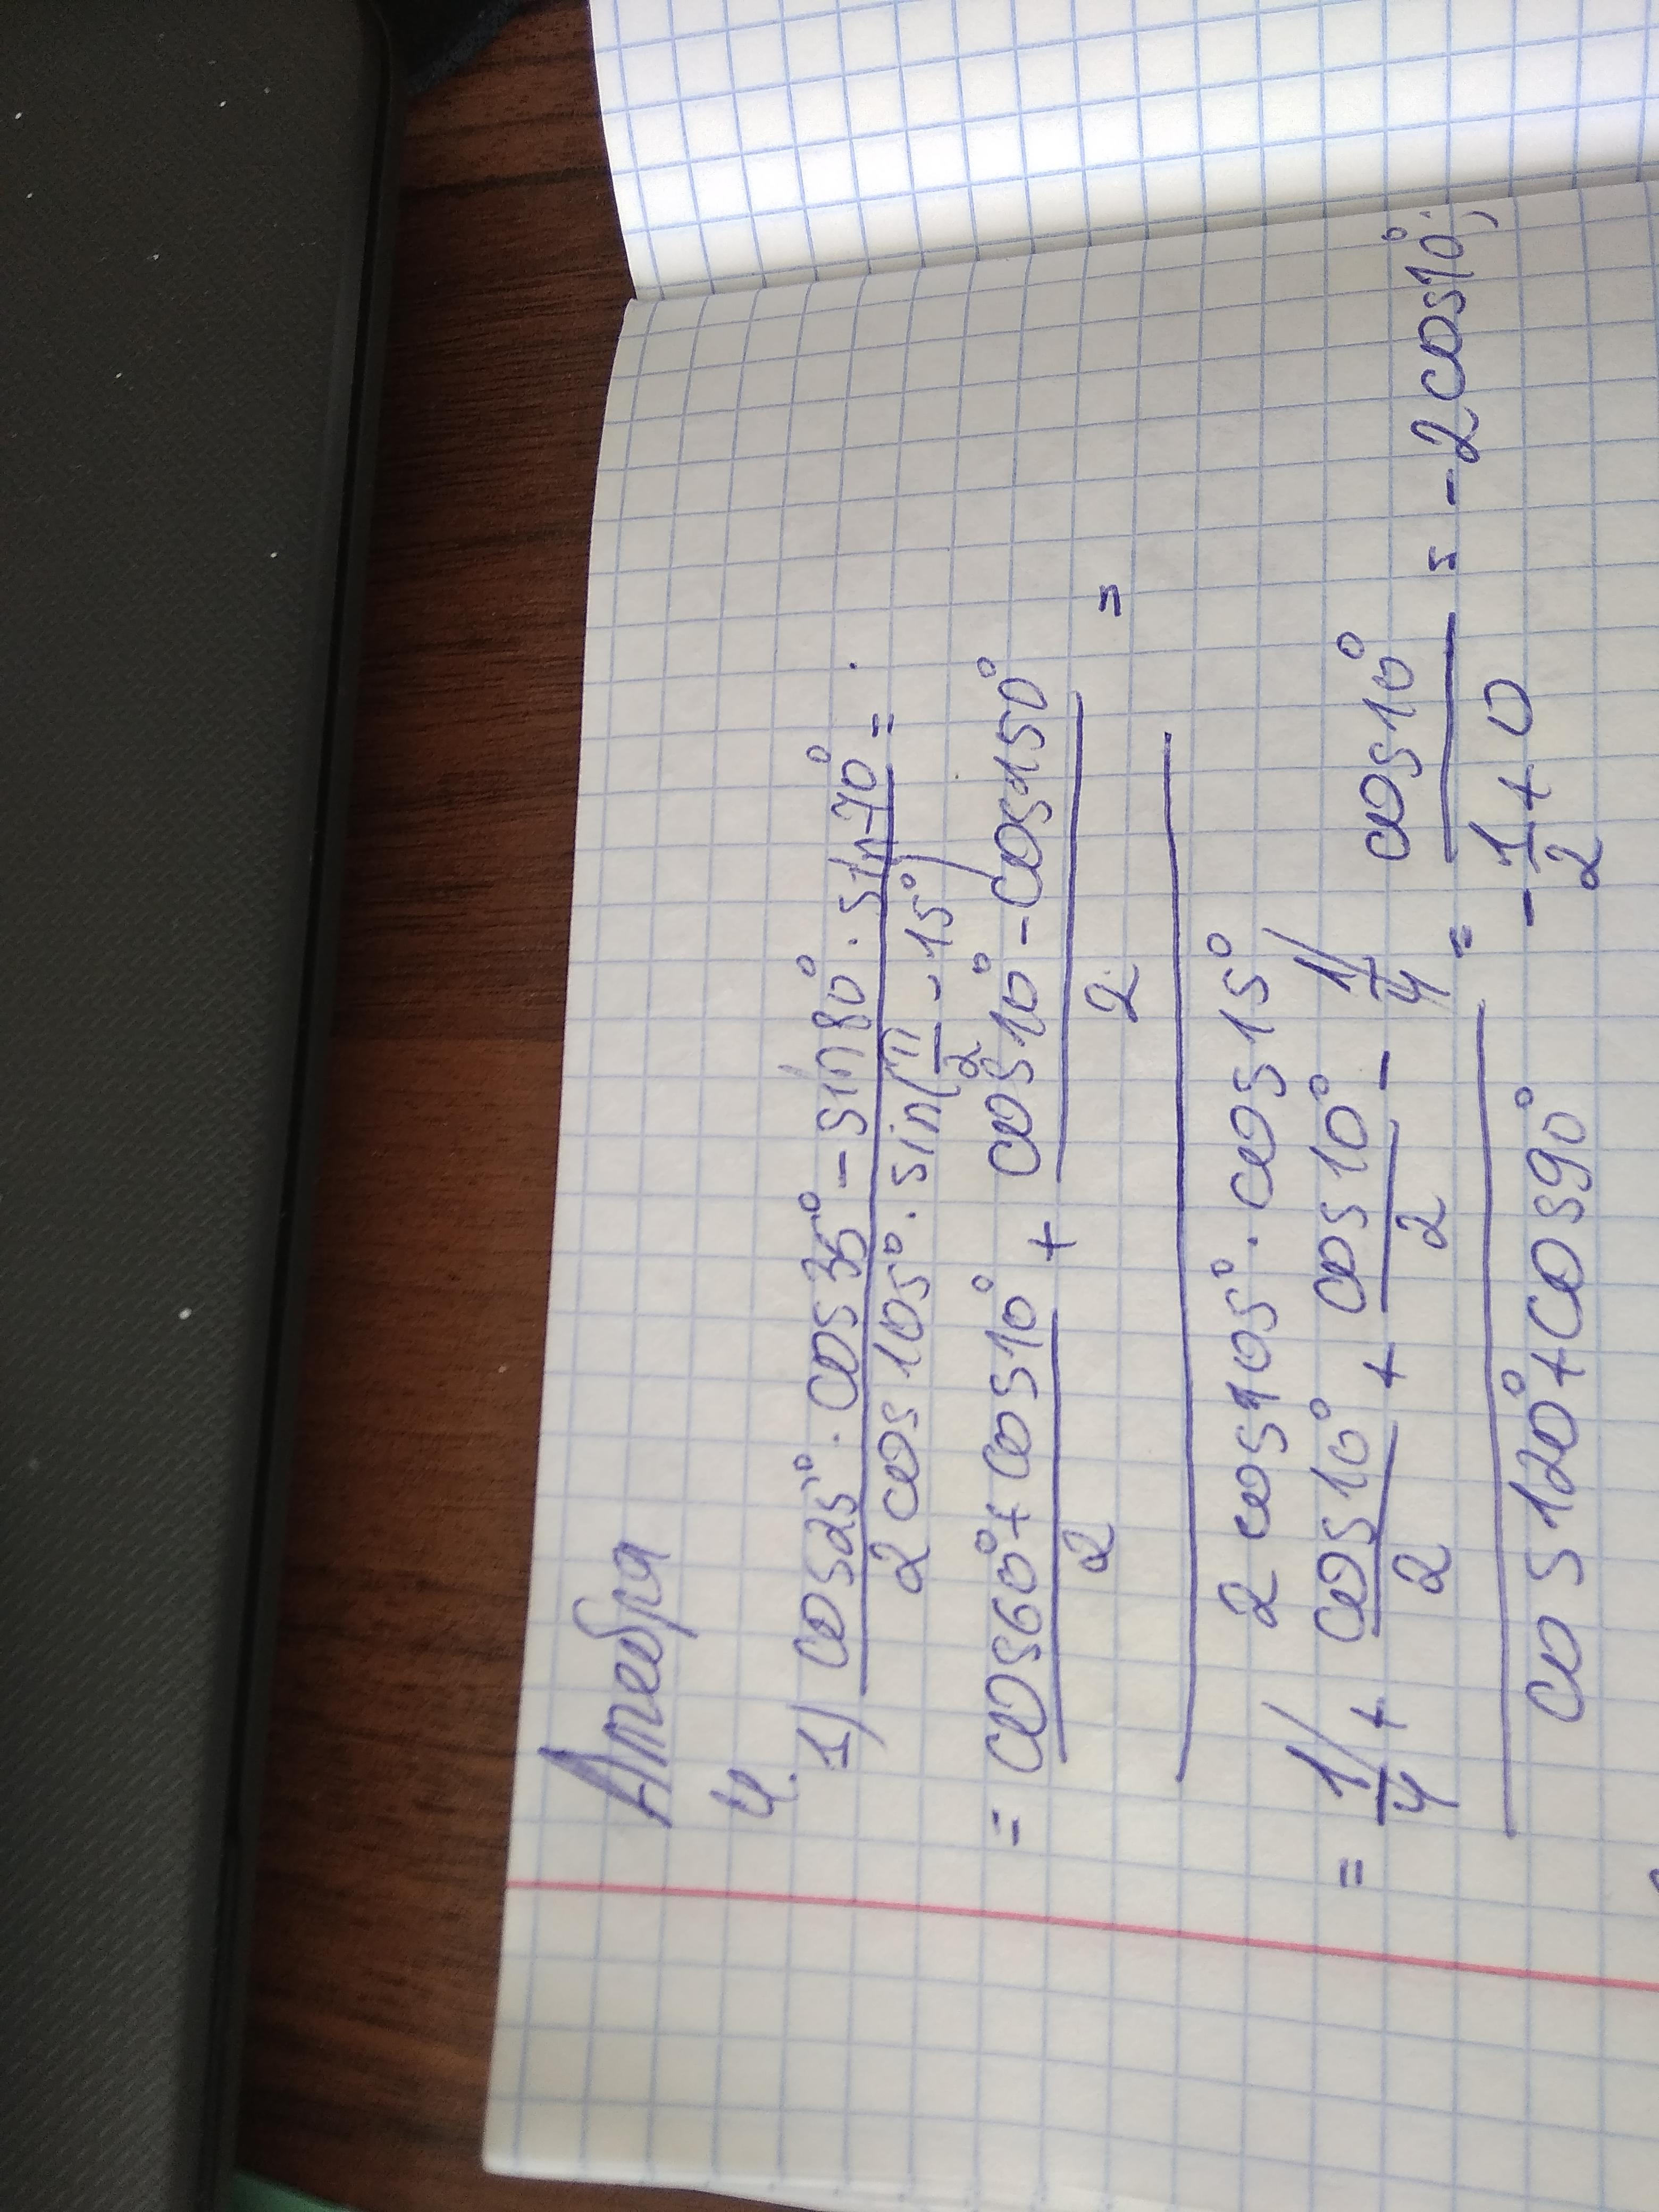 Алгебра
4.
1) cos25° · cos35° - sin80° · sin70° =
2 cos 105° · sin(π/2 - 15°)
= cos60° + cos10° / 2 + cos10° - cos150° / 2 =
2 cos105° · cos15°
= 1/4 + cos10°/2 + cos10°/2 - 1/4 = cos10° = -2cos10°;
cos120° + cos90° -1/2 + 0